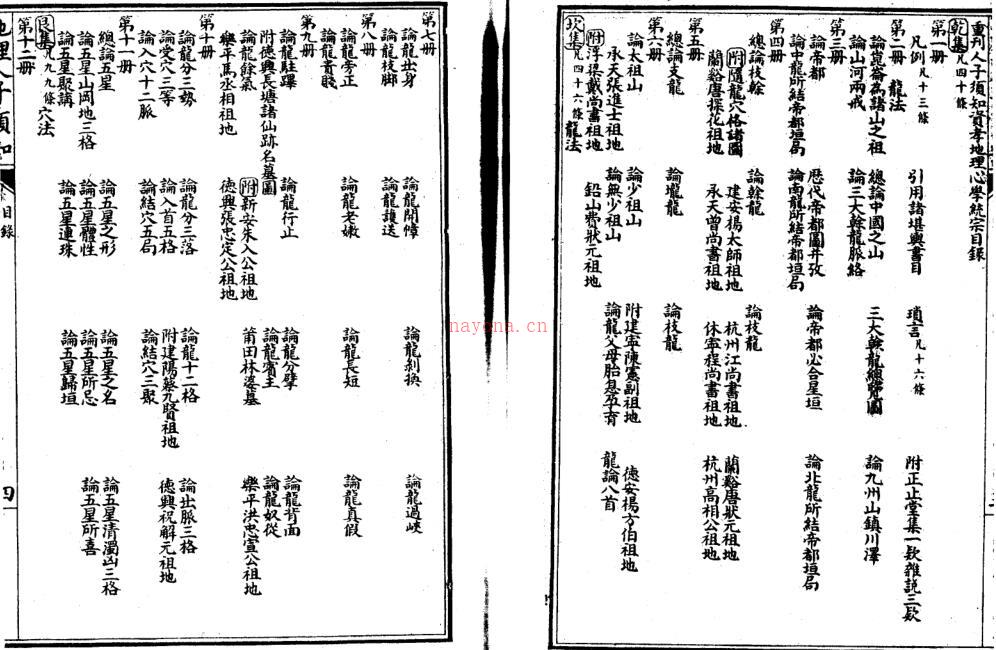 重刋人子須知資孝地理心學統宗目錄
乾集凡四十條
第一冊
凡例凡十三條 引用諸堪輿書目 瑣言凡十六條 附正止堂集一欵雜説三欵
第二冊 龍法
論崑崙為諸山之祖 總論中國之山 三大榦龍總覽圖 論九州山鎮川澤
論山河兩戒 論三大榦龍脈絡
第三冊
論帝都 歷代帝都圖并攷 論帝都必合星垣 論北龍所結帝都垣局
論中龍所結帝都垣局 論南龍所結帝都垣局
第四冊
總論枝榦 論榦龍 論枝龍
附隨龍穴格諸圖 建安楊太師祖地 杭州江尚書祖地 蘭谿唐狀元祖地
蘭谿唐探花祖地 承天曾尚書祖地 休寧程尚書祖地 杭州高相公祖地
第五冊
總論支龍 論壠龍 論枝龍
第六冊
論太祖山 論少祖山 附建寧陳憲副祖地 德安楊方伯祖地
承天張進士祖地 論無少祖山 論龍父母胎息孕育 龍論八首
附浮梁戴尚書祖地 鉛山費狀元祖地
坎集凡四十六條龍法
第七冊
論龍出身 論龍開幛 論龍剝換 論龍過峽
論龍枝脚 論龍護送
第八冊
論龍旁正 論龍老嫩 論龍長短 論龍真假
論龍貴賤
第九冊
論龍駐蹕 論龍行止 論龍分擘 論龍背面
附德興長塘諸仙跡名墓圖 論龍賓主 論龍奴從
論龍餘氣 附新安朱文公祖地 莆田林婆墓 樂平洪忠宣公祖地
樂平馬丞相祖地 德興張忠定公祖地
第十冊
論龍分三勢 論龍分三落 論龍十二格 論出脈三格
論受穴三等 論入首五格 附建陽蔡九賢祖地 德興祝解元祖地
論入穴十二脈 論結穴五局 論結穴三聚
第十一冊
總論五星 論五星之形 論五星之名 論五星清濁凶三格
論五星山岡地三格 論五星體性 論五星所忌 論五星所喜
論五星聚講 論五星連珠 論五星歸垣
艮集凡九九條穴法
第十二冊
地理人子須知
目錄
nayona.cn